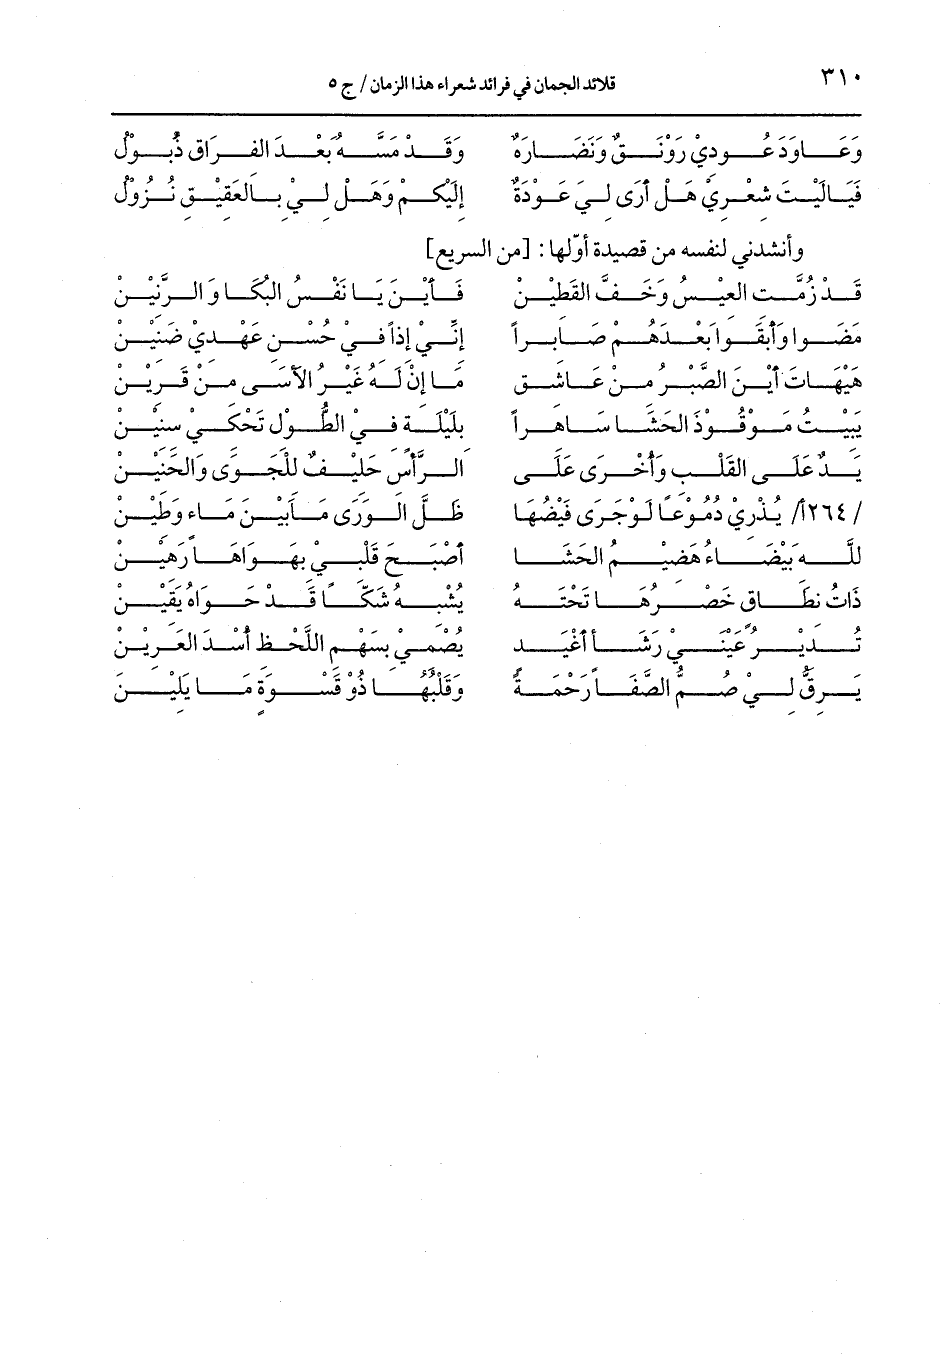 ٣١٠ قلائد الجمان في فرائد شعراء هذا الزمان/ ج ٥
وَعَاوَدَ عُودِيْ رَوْنَقٌ وَنَضَارَةٌ وَقَدْ مَسَّهُ بَعْدَ الفِرَاقِ ذُبُوْلُ
فَيَالَيْتَ شِعْرِيْ هَلْ أَرَى لِيَ عَوْدَةٌ إِلَيْكُمْ وَهَلْ لِيْ بِالعَقِيْقِ نُزُوْلُ
وأنشدني لنفسه من قصيدة أوّلها: [من السريع]
قَدْ زُمَّتِ العِيْسُ وَخَفَّ القَطِيْنْ فَأَيْنَ يَا نَفْسُ البُكَا وَالرَّنِيْنْ
مَضَوا وَأَبْقَوا بَعْدَهُمْ صَابِراً إِنِّيْ إِذاً فِيْ حُسْنِ عَهْدِيْ ضَنِيْنْ
هَيْهَاتَ أَيْنَ الصَّبْرُ مِنْ عَاشِقٍ مَا إِنْ لَهُ غَيْرُ الأَسَى مِنْ قَرِيْنْ
يَبِيْتُ مَوْقُوْذَ الحَشَا سَاهِراً بِلَيْلَةٍ فِي الطُّوْلِ تَحْكِيْ سِنِيْنْ
يَدٌ عَلَى القَلْبِ وَأُخْرَى عَلَى الرَّأْسِ حَلِيْفٌ لِلْجَوَى وَالحَنِيْنْ
/٢٦٤أ/ يُذْرِيْ دُمُوْعاً لَوْ جَرَى فَيْضُهَا ظَلَّ الوَرَى مَا بَيْنَ مَاءٍ وَطِيْنْ
لِلَّهِ بَيْضَاءُ هَضِيْمُ الحَشَا أَصْبَحَ قَلْبِيْ بِهَوَاهَا رَهِيْنْ
ذَاتُ نِطَاقٍ خَصْرُهَا تَحْتَهُ يُشْبِهُ شَكّاً قَدْ حَوَاهُ يَقِيْنْ
تُدِيْرُ عَيْنَيْ رَشَأٍ أَغْيَدٍ يُصْمِيْ بِسَهْمِ اللَّحْظِ أُسْدَ العَرِيْنْ
يَرِقُّ لِيْ صُمُّ الصَّفَا رَحْمَةً وَقَلْبُهَا ذُوْ قَسْوَةٍ مَا يَلِيْنْ